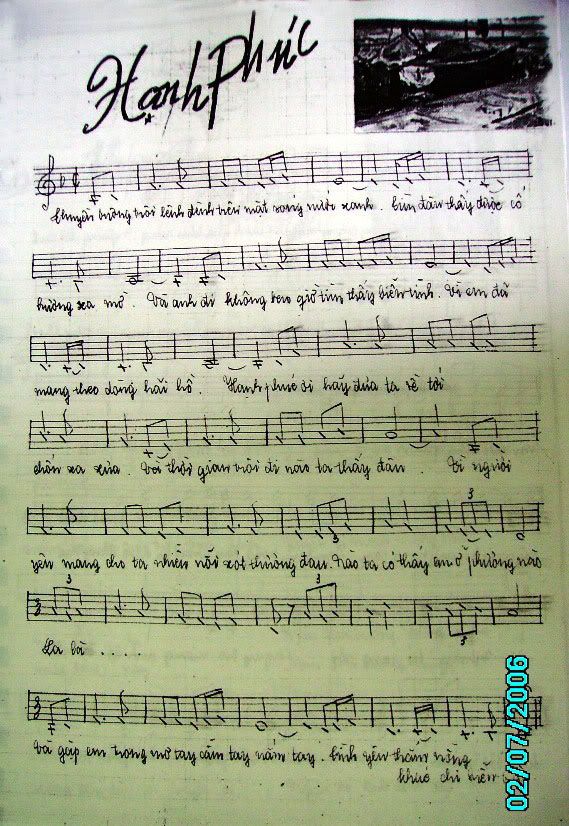 Hạnh Phúc
thuyền buồng trôi lênh đênh trên mặt sóng nước xanh. tìm đâu thấy được cố
hương xa mờ. Và anh đi không bao giờ tìm thấy biển tình. Vì em đã
mang theo dòng hải hồ. Hạnh phúc ơi hãy đưa ta về tới
chốn xa xưa. Với thời gian trôi đi nào ta thấy đâu. Vì người
yêu mang cho ta nhiều nỗi xót thương đau. Nào ta có thấy em ở phương nào
3
3
3
3
La bà . . . .
3
3
Và gặp em trong mơ tay cầm tay nắm tay. bình yên thắm nồng
khúc chi
02/07/2006